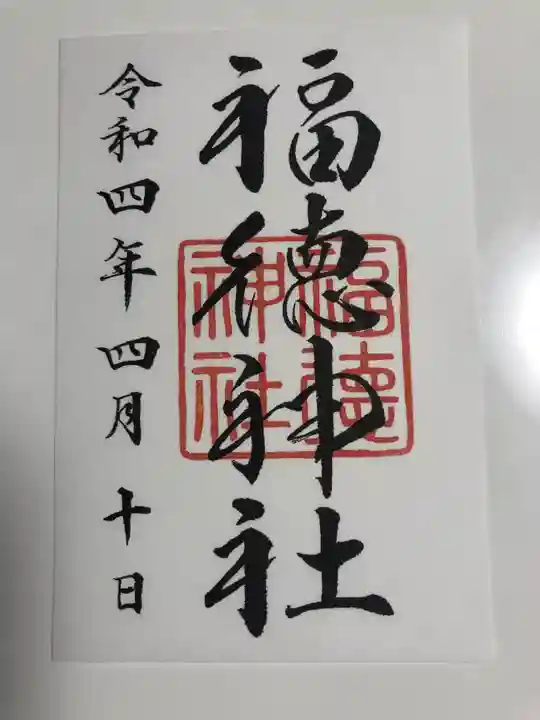 福徳神社
福徳
神社
令和四年四月十日